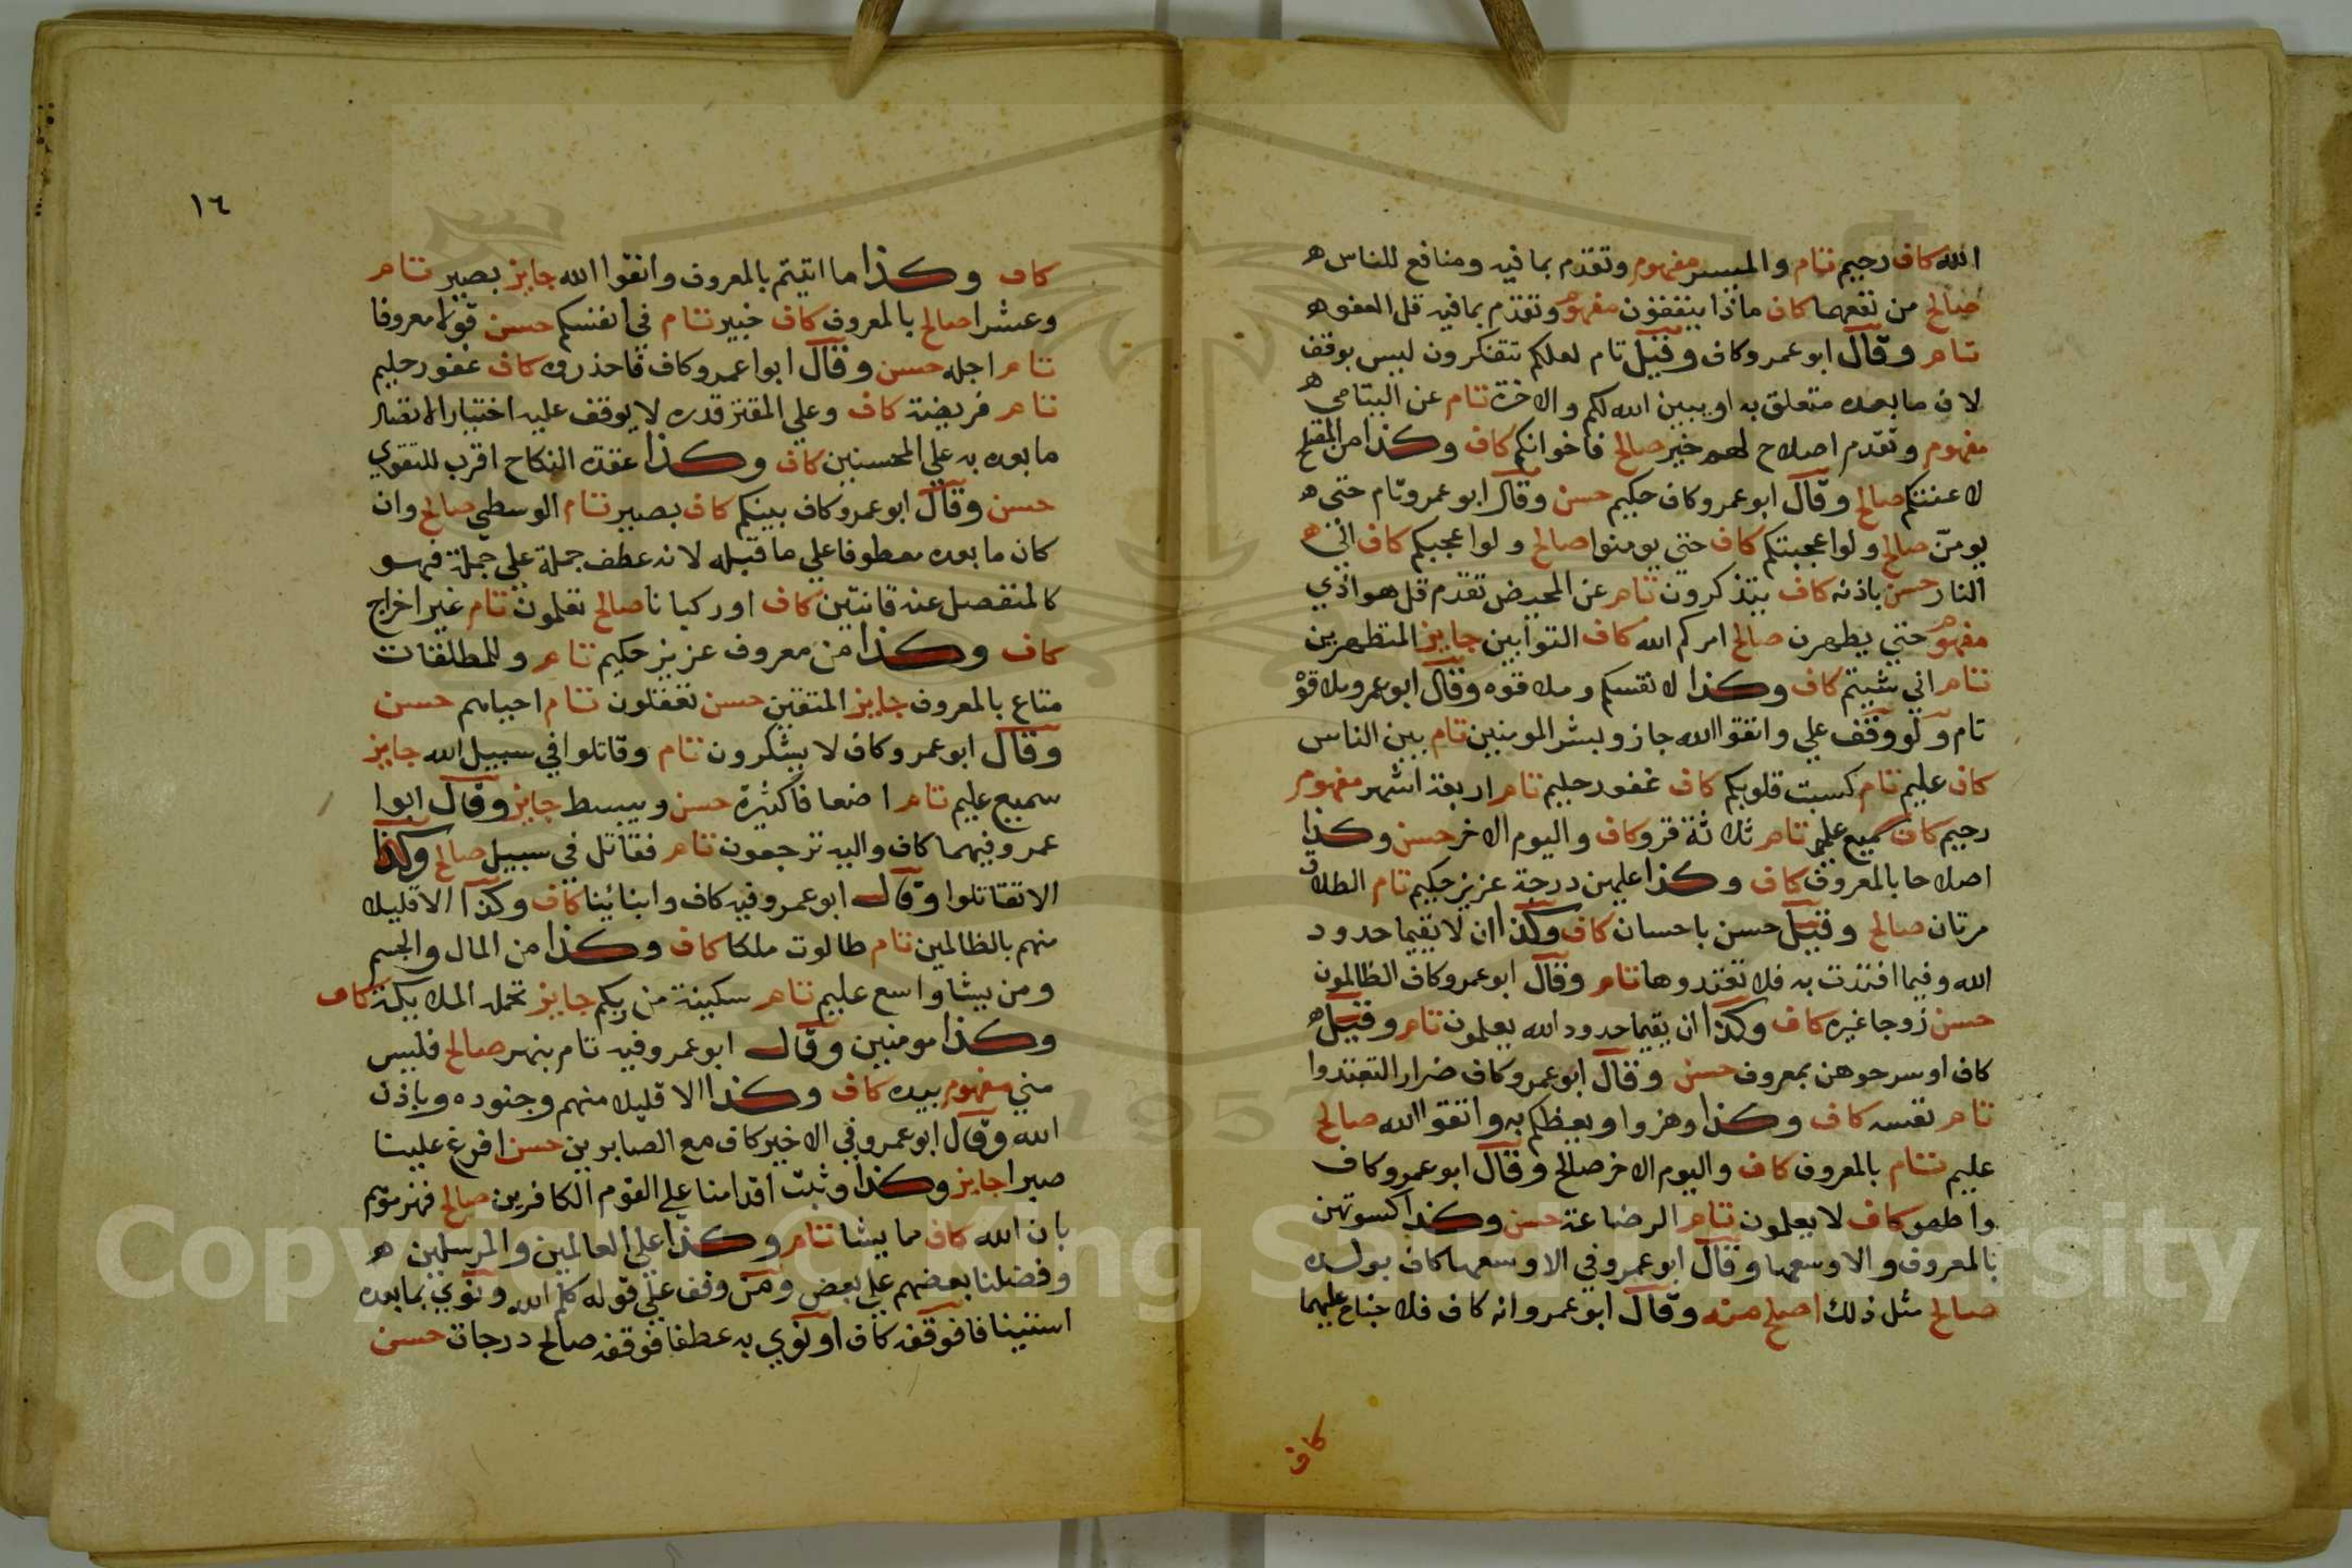 الله كاف رحيم تام والميسر مفهوم وتقدم بما فيه ومنافع للناس ه
صالح من نفعهما كاف ماذا ينفقون مفهوم وتقدم بما فيه قل العفو ه
تام وقال ابو عمرو كاف وقيل تام لعلكم تتفكرون ليس بوقف
لان ما بعده متعلق به او يبين الله لكم والاخرة تام عن اليتامي ه
مفهوم وتقدم اصلاح لهم خير صالح فاخوانكم كاف وكذا من المصلح
لاعنتكم صالح وقال ابو عمرو كاف حكيم حسن وقال ابو عمرو تام حتي ه
يومن صالح ولو اعجبتكم كاف حتي يومنوا صالح ولو اعجبكم كاف الي ه
النار حسن باذنه كاف يتذكرون تام عن المحيض تقدم قل هو اذي
مفهوم حتي يطهرن صالح امركم الله كاف التوابين جايز المتطهرين
تام اني شيتم كاف وكذا لانفسكم وملاقوه وقال ابو عمرو ملاقوه
تام ولو وقف علي واتقوا الله جاز وبشر المومنين تام بين الناس
كاف عليم تام كسبت قلوبكم كاف غفور حليم تام اربعة اشهر مفهوم
رحيم كاف سميع عليم تام ثلاثة قرو كاف واليوم الاخر حسن وكذا
اصلاحا بالمعروف كاف وكذا عليهن درجة عزيز حكيم تام الطلاق
مرتان صالح وقيل حسن باحسان كاف وكذا ان لا يقيما حدود
الله وفيما افتدت به فلا تعتدوها تام وقال ابو عمرو كاف الظالمون
حسن زوجا غيره كاف وكذا ان يقيما حدود الله يعلمون تام وقيل ه
كاف او سرحوهن بمعروف حسن وقال ابو عمرو كاف ضرارا لتعتدوا
تام نفسه كاف وكذا وهزوا ويعظكم به واتقوا الله صالح
عليم تام بالمعروف كاف واليوم الاخر صالح وقال ابو عمرو كاف
واطهر كاف لا يعلمون تام الرضاعة حسن وكذا كسوتهن
بالمعروف والا وسعها وقال ابو عمرو في الا وسعها كاف بولده
صالح مثل ذلك اصلح منه وقال ابو عمرو انه كاف فلا جناح عليهما
كاف
١٦
كاف وكذا ما اتيتم بالمعروف واتقوا الله جايز بصير تام
وعشرا صالح بالمعروف كاف خبير تام في انفسكم حسن قولا معروفا
تام اجله حسن وقال ابوا عمرو كاف فاحذروه كاف غفور حليم
تام فريضة كاف وعلي المقتر قدره لا يوقف عليه اختيارا لاتصال
ما بعده به علي المحسنين كاف وكذا عقدة النكاح اقرب للتقوي
حسن وقال ابو عمرو كاف بينكم كاف بصير تام الوسطي صالح وان
كان ما بعده معطوفا علي ما قبله لانه عطف جملة علي جملة فهو
كالمنفصل عنه قانتين كاف او ركبانا صالح تعلمون تام غير اخراج
كاف وكذا من معروف عزيز حكيم تام وللمطلقات
متاع بالمعروف جايز المتقين حسن تعقلون تام احياهم حسن
وقال ابو عمرو كاف لا يشكرون تام وقاتلوا في سبيل الله جايز
سميع عليم تام اضعافا كثيرة حسن ويبسط جايز وقال ابوا
عمرو فيهما كاف واليه ترجعون تام نقاتل في سبيل صالح وكذا
الا تقاتلوا وقال ابو عمرو فيه كاف وابنائنا كاف وكذا الا قليلا
منهم بالظالمين تام طالوت ملكا كاف وكذا من المال والجسم
ومن يشا واسع عليم تام سكينة من ربكم جايز تحمله الملايكة كاف
وكذا مومنين وقال ابو عمرو فيه تام بنهر صالح فليس
مني مفهوم بيده كاف وكذا الا قليلا منهم وجنوده وباذن
الله وقال ابو عمرو في الاخير كاف مع الصابرين حسن افرغ علينا
صبرا جايز وكذا وثبت اقدامنا علي القوم الكافرين صالح فهزموهم
باذن الله كاف مما يشا تام وكذا علي العالمين والمرسلين ه
وفضلنا بعضهم علي بعض ومن وقف علي قوله كلم الله ونوي بما بعده
استينافا فوقفه كاف او نوي به عطفا فوقفه صالح درجات حسن
Copyright © King Saud University
1957